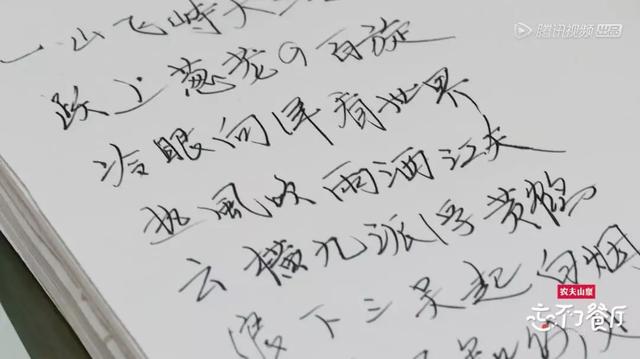 腾讯视频 出品
一山飞峙大
跃上葱茏四百旋
冷眼向洋看世界
热风吹雨洒江天
云横九派浮黄鹤
浪下三吴起白烟
农夫山泉
忘不了餐厅